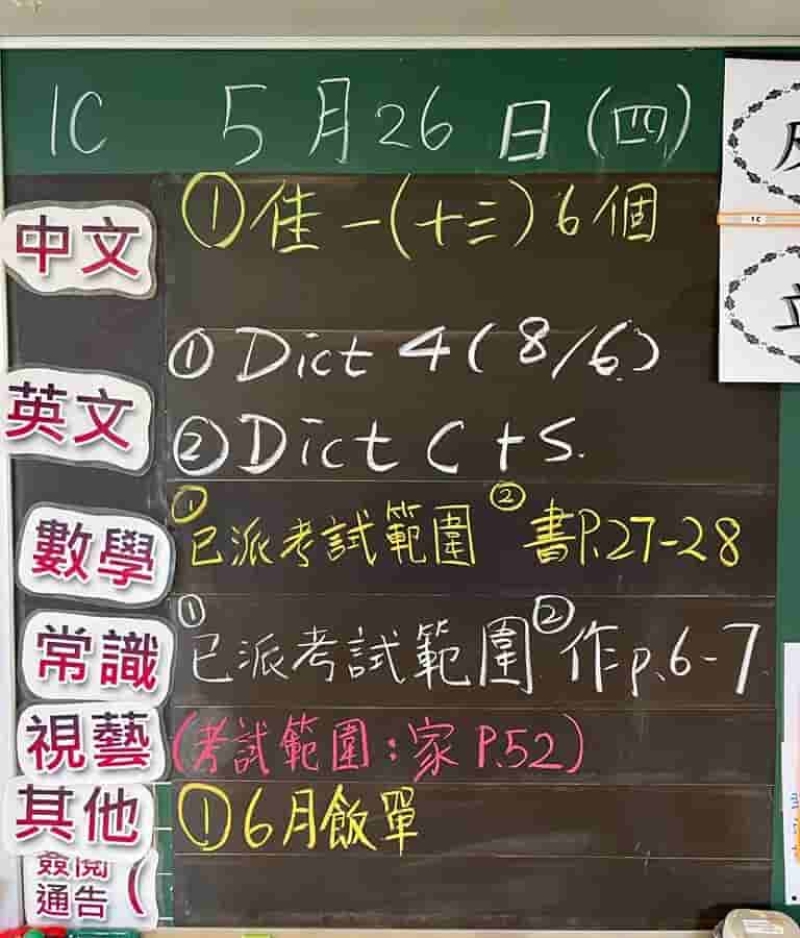 1C 5月26日(四)
中文 ①佳一(十三)6個
英文 ①Dict 4(8/6)
②Dict C+S.
數學 ①已派考試範圍 ②書P.27-28
常識 ①已派考試範圍 ②作p.6-7
視藝 (考試範圍:家P.52)
其他 ①6月飯單
簽閱
通告 (
1C